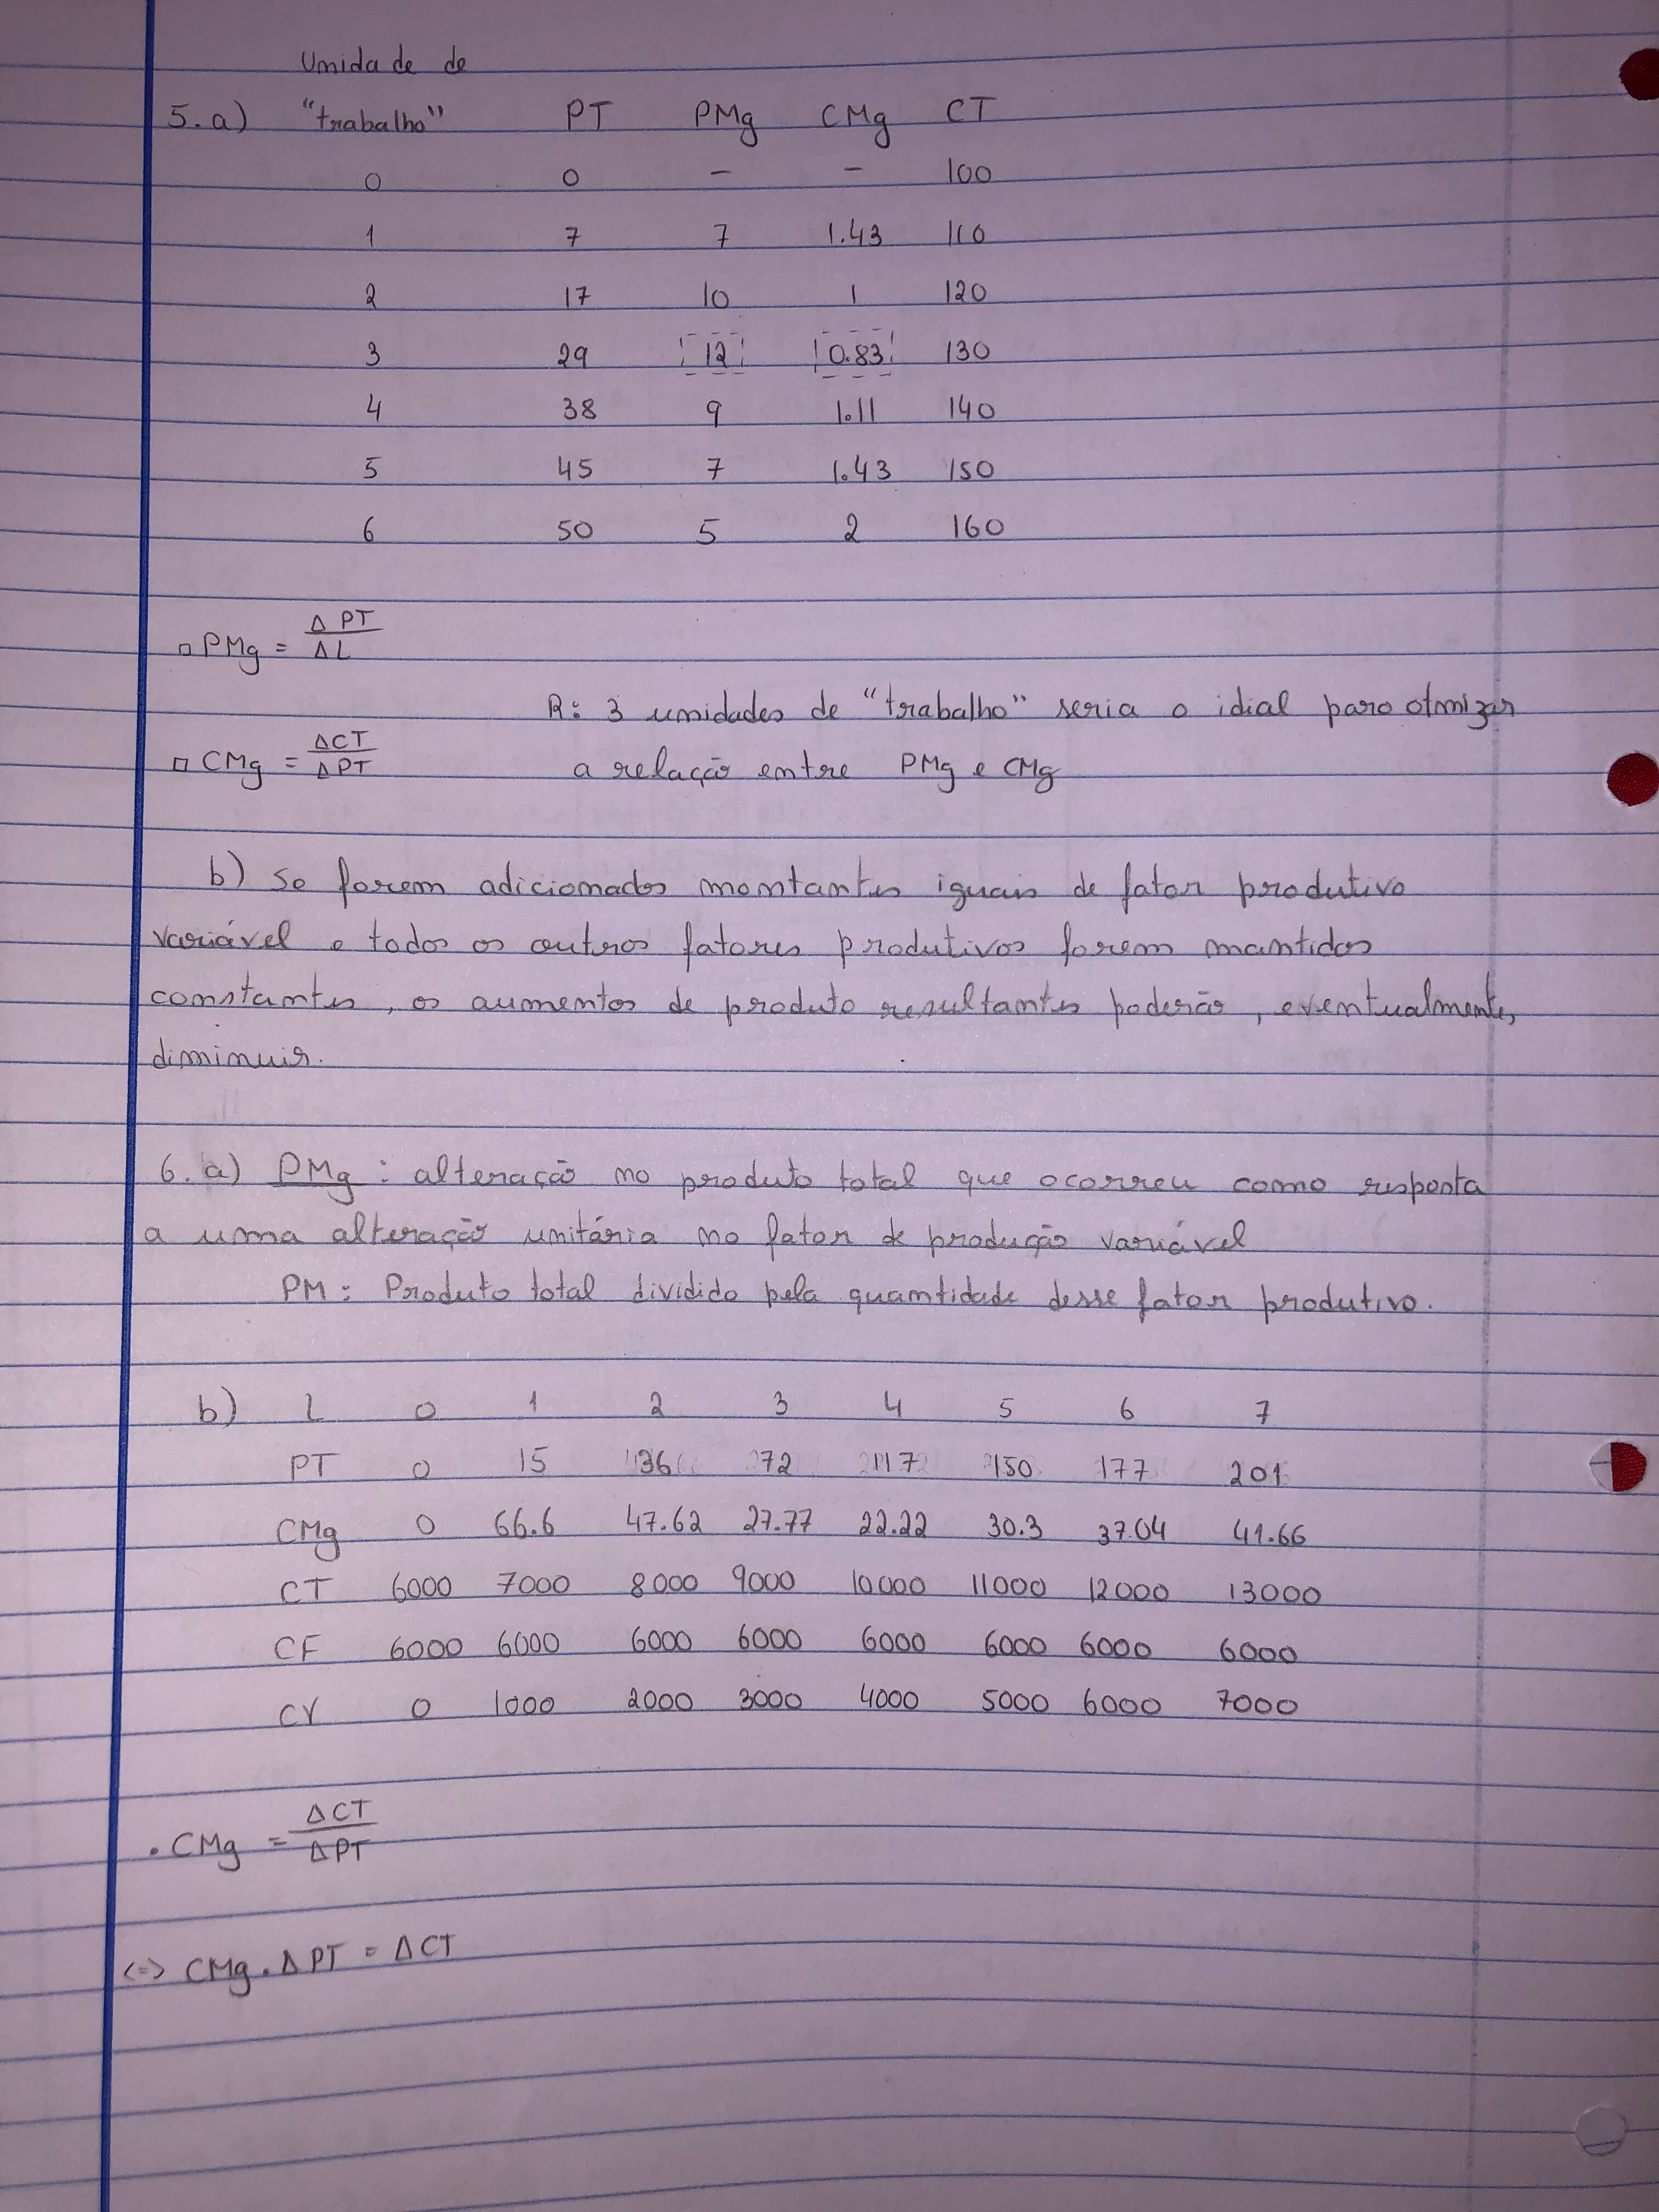 Unidade de
5. a) "trabalho" PT PMg CMg CT
0 0 – – 100
1 7 7 1.43 110
2 17 10 1 120
3 29 12 0.83 130
4 38 9 1.11 140
5 45 7 1.43 150
6 50 5 2 160
▫ PMg = ΔPT / ΔL
R: 3 unidades de "trabalho" seria o idial para otmizar
▫ CMg = ΔCT / ΔPT a relação entre PMg e CMg
b) Se forem adicionados montantes iguais de fator produtivo
variável e todos os outros fatores produtivos forem mantidos
constantes, os aumentos de produto resultantes poderão, eventualmente,
diminuir.
6. a) PMg : alteração no produto total que ocorreu como resposta
a uma alteração unitária no fator de produção variável
PM : Produto total dividido pela quantidade desse fator produtivo.
b) L 0 1 2 3 4 5 6 7
PT 0 15 36 72 117 150 177 201
CMg 0 66.6 47.62 27.77 22.22 30.3 37.04 41.66
CT 6000 7000 8000 9000 10000 11000 12000 13000
CF 6000 6000 6000 6000 6000 6000 6000 6000
CV 0 1000 2000 3000 4000 5000 6000 7000
• CMg = ΔCT / ΔPT
<=> CMg . ΔPT = ΔCT